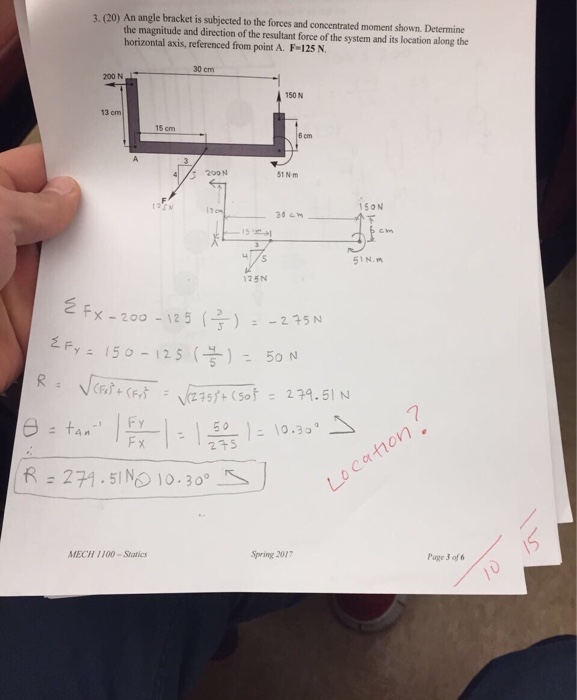 3. (20) An angle bracket is subjected to the forces and concentrated moment shown. Determine
the magnitude and direction of the resultant force of the system and its location along the
horizontal axis, referenced from point A. F=125 N.
30 cm
200 N
150 N
13 cm
15 cm
6 cm
A
3
4
5
F
125N
51 N·m
200N
13cm
30 cm
150N
6 cm
15 cm
A
3
4
5
125N
51 N.m
ΣFx - 200 - 125 (3/5) = -275N
ΣFy = 150 - 125 (4/5) = 50 N
R = √(Fx)² + (Fy)² = √(275)² + (50)² = 279.51 N
θ = tan⁻¹ |Fy/Fx| = |50/275| = 10.30°
∴
R = 279.51N@ 10.30°
Location?
MECH 1100 – Statics
Spring 2017
Page 3 of 6
10
15